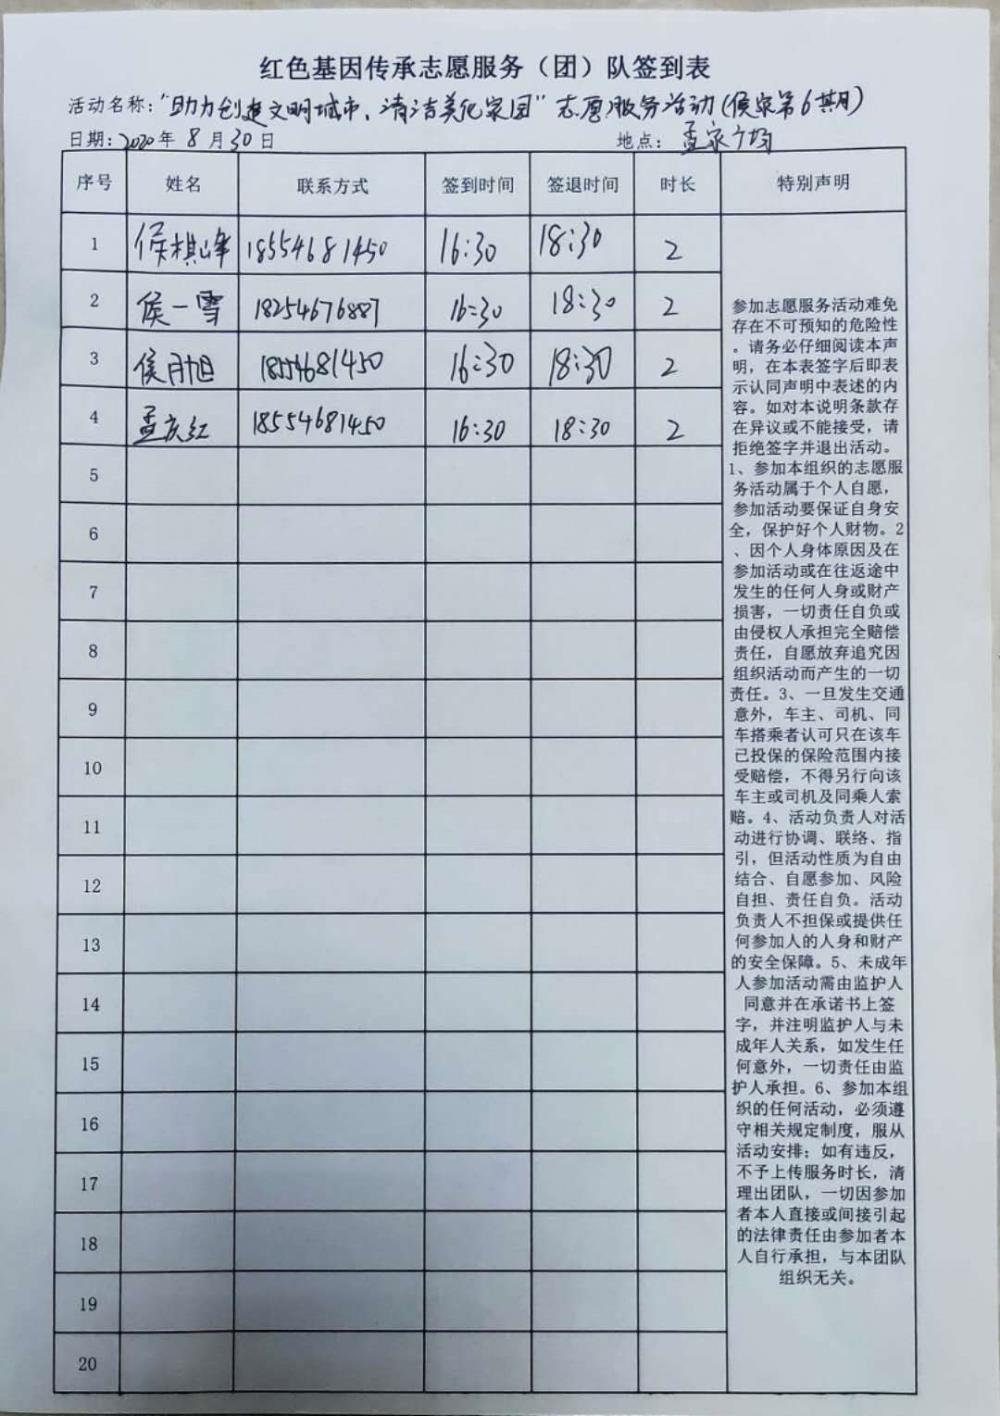 红色基因传承志愿服务（团）队签到表
活动名称："助力创建文明城市、清洁美化家园"志愿服务活动(侯家第6期)
日期：2020年 8 月30日 地点：孟家广场
序号 姓名 联系方式 签到时间 签退时间 时长 特别声明
1 侯棋峰 18554681450 16:30 18:30 2
2 侯一雪 18254676887 16:30 18:30 2
3 侯月旭 18554681450 16:30 18:30 2
4 孟庆红 18554681450 16:30 18:30 2
5
6
7
8
9
10
11
12
13
14
15
16
17
18
19
20
参加志愿服务活动难免
存在不可预知的危险性
。请务必仔细阅读本声
明，在本表签字后即表
示认同声明中表述的内
容。如对本说明条款存
在异议或不能接受，请
拒绝签字并退出活动。
1、参加本组织的志愿服
务活动属于个人自愿，
参加活动要保证自身安
全，保护好个人财物。2
、因个人身体原因及在
参加活动或在往返途中
发生的任何人身或财产
损害，一切责任自负或
由侵权人承担完全赔偿
责任，自愿放弃追究因
组织活动而产生的一切
责任。3、一旦发生交通
意外，车主、司机、同
车搭乘者认可只在该车
已投保的保险范围内接
受赔偿，不得另行向该
车主或司机及同乘人索
赔。4、活动负责人对活
动进行协调、联络、指
引，但活动性质为自由
结合、自愿参加、风险
自担、责任自负。活动
负责人不担保或提供任
何参加人的人身和财产
的安全保障。5、未成年
人参加活动需由监护人
同意并在承诺书上签
字，并注明监护人与未
成年人关系，如发生任
何意外，一切责任由监
护人承担。6、参加本组
织的任何活动，必须遵
守相关规定制度，服从
活动安排；如有违反，
不予上传服务时长，清
理出团队，一切因参加
者本人直接或间接引起
的法律责任由参加者本
人自行承担，与本团队
组织无关。